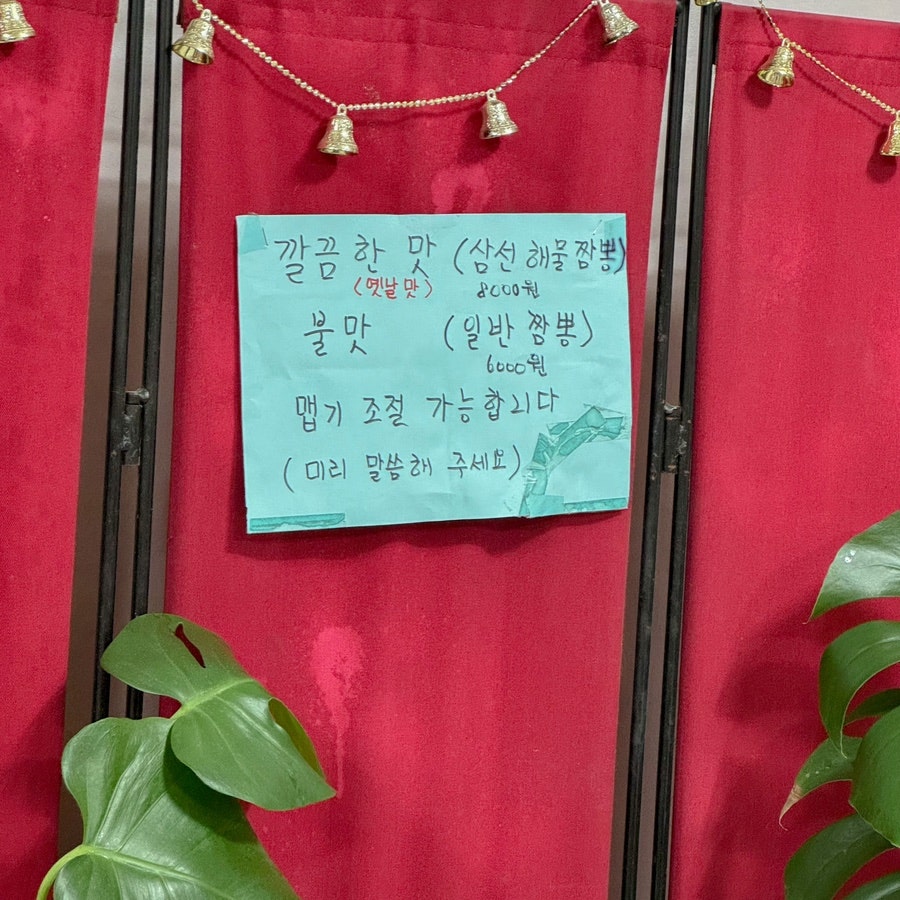 깔끔한 맛 (삼선해물짬뽕)
(옛날맛) 8000원
불맛 (일반짬뽕)
6000원
맵기 조절 가능합니다
(미리 말씀해 주세요)